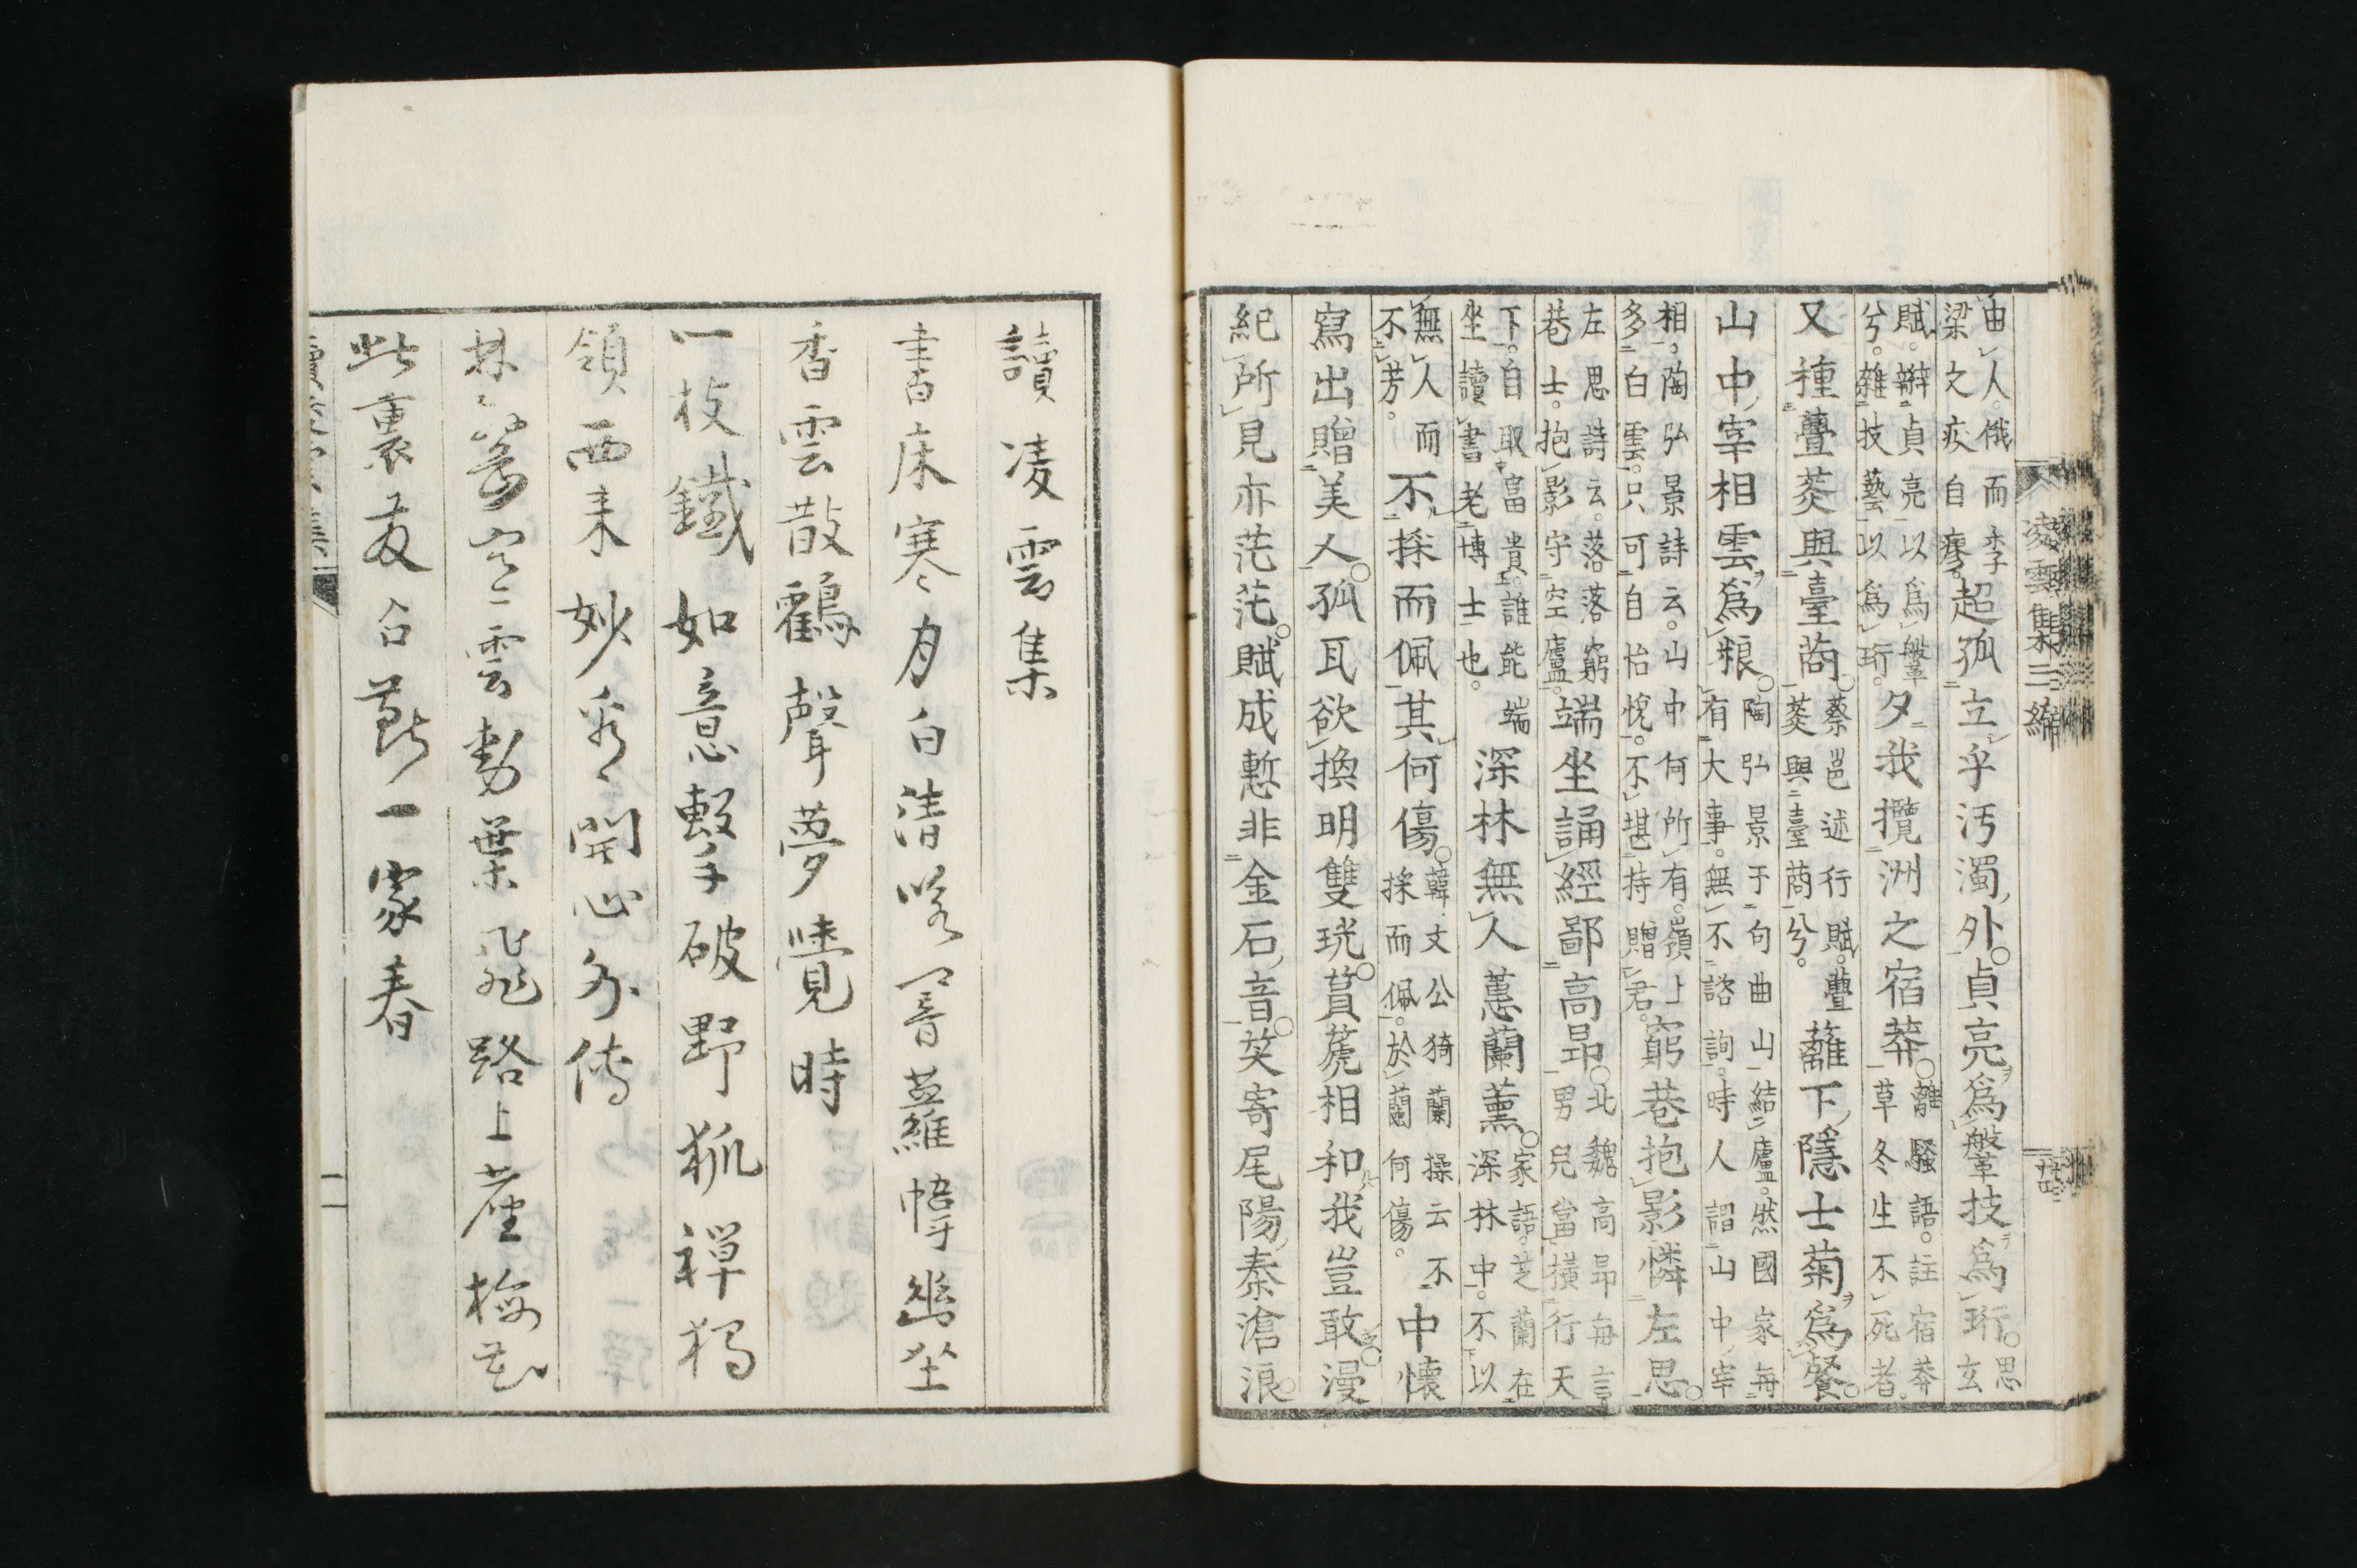 由人。俄而李
梁之疚自瘳。
超孤立乎汚濁外。貞亮爲鞶技爲珩。
思
玄
賦。辮貞亮以爲鞶
兮。雜技藝以爲珩。
夕我攬洲之宿莽。
離騷語。註宿莽
草冬生不死者。
又種虆菼與臺菵。
蔡邕述行賦。虆
菼與臺菵兮。
蘺下隱士菊爲餐。
山中宰相雲爲粮。
陶弘景于句曲山結廬。然國家每
有大事。無不諮詢。時人謂山中宰
相。陶弘景詩云。山中何所有。嶺上
多白雲。只可自怡悅。不堪持贈君。
窮巷抱影憐左思。
左思詩云。落落窮
巷士。抱影守空廬。
端坐誦經鄙高昂。
北魏高昂每言
男兒當橫行天
下。自取富貴。誰能端
坐讀書老博士也。
深林無人蕙蘭薰。
家語。芝蘭在
深林中。不以
無人而
不芳。
不採而佩其何傷。
韓文公猗蘭操云不
採而佩。於蘭何傷。
中懷
寫出贈美人。孤瓦欲換明雙珖。莨菎相和我豈敢。漫
紀所見亦茫茫。賦成慙非金石音。笑寄尾陽秦滄浪。
凌雲集三編
讀凌雲集
書床寒月白清
香雲散鶴聲夢覺時
一枝鐵如意擊破野狐禪獨
領西來妙
雲動葉飛路上塵梅花
此裏友合一家春
二